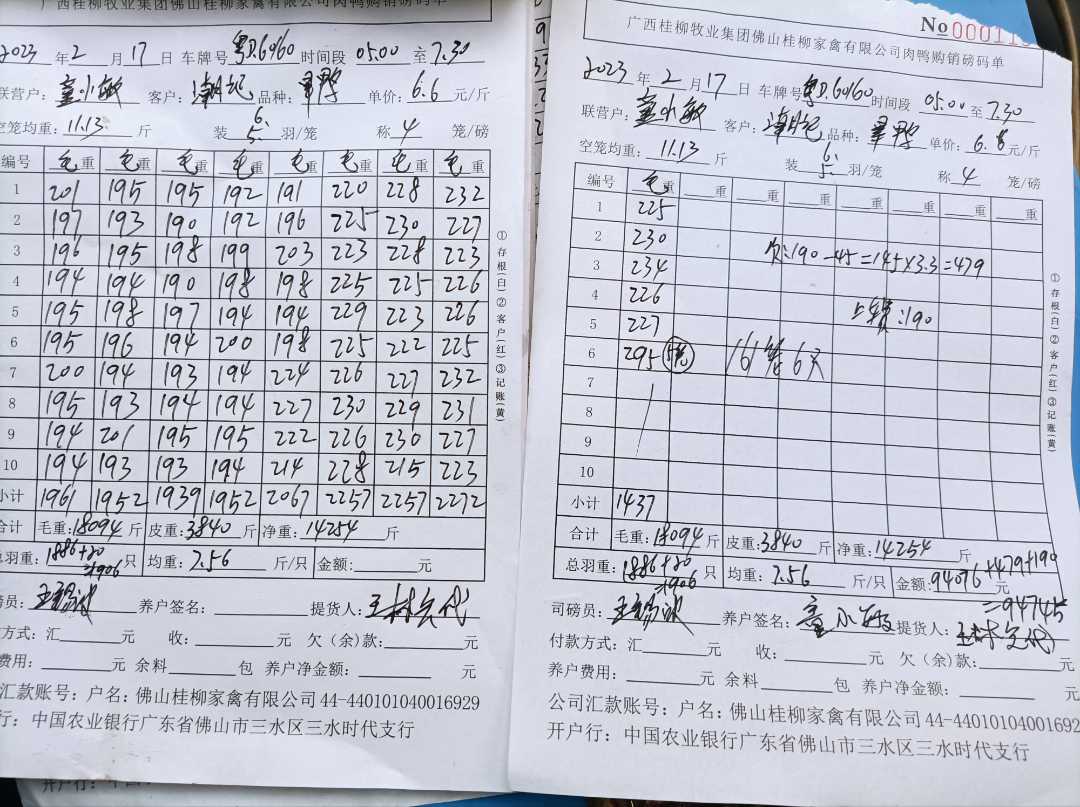 广西桂柳牧业集团佛山桂柳家禽有限公司肉鸭购销磅码单
2023 年 2 月 17 日 车牌号 粤D.60160 时间段 05.00 至 7.30
联营户: 童小敏 客户: 品种: 单价: 6.6 元/斤
空笼均重: 11.13 斤 装 6. 5. 羽/笼 称 4 笼/磅
编号 毛重 毛重 毛重 毛重 毛重 毛重 毛重 毛重
1 201 195 195 192 191 220 228 232
2 197 193 190 192 196 225 230 227
3 196 195 198 199 203 223 228 223
4 194 194 190 198 198 225 225 226
5 195 198 197 194 194 229 223 226
6 195 196 194 200 198 225 222 225
7 200 194 193 194 224 226 227 232
8 195 193 194 194 227 230 229 231
9 194 201 195 195 222 226 230 227
10 194 193 193 194 214 228 215 223
小计 1961 1952 1939 1952 2067 2257 2257 2272
合计 毛重: 18094 斤 皮重: 3840 斤 净重: 14254 斤
总羽重: 1886+20 =1906 只 均重: 7.56 斤/只 金额: 元
磅员: 养户签名: 提货人: 王林云代
方式: 汇 元 收: 元 欠(余)款: 元
费用: 元 余料 包 养户净金额: 元
汇款账号: 户名: 佛山桂柳家禽有限公司 44-440101040016929
行: 中国农业银行广东省佛山市三水区三水时代支行
①存根(白)②客户(红)③记账(黄)
开户行:
No 000011
广西桂柳牧业集团佛山桂柳家禽有限公司肉鸭购销磅码单
2023 年 2 月 17 日 车牌号 粤D.60160 时间段 05.00 至 7.30
联营户: 童小敏 客户: 品种: 单价: 6.6 元/斤
空笼均重: 11.13 斤 装 6. 5. 羽/笼 称 4 笼/磅
编号 毛重 重 重 重 重 重 重 重
1 225
2 230 欠:190-45=145×3.3=479
3 234
4 226 :190
5 227
6 295 161笼6只
7
8
9
10
小计 1437
合计 毛重: 18094 斤 皮重: 3840 斤 净重: 14254 斤
总羽重: 1886+20 =1906 只 均重: 7.56 斤/只 金额: 94076+479+190 元
=94745
司磅员: 养户签名: 童小敏 提货人: 王林云代
付款方式: 汇 元 收: 元 欠(余)款: 元
养户费用: 元 余料 包 养户净金额: 元
公司汇款账号: 户名: 佛山桂柳家禽有限公司 44-44010104001692
开户行: 中国农业银行广东省佛山市三水区三水时代支行
①存根(白)②客户(红)③记账(黄)